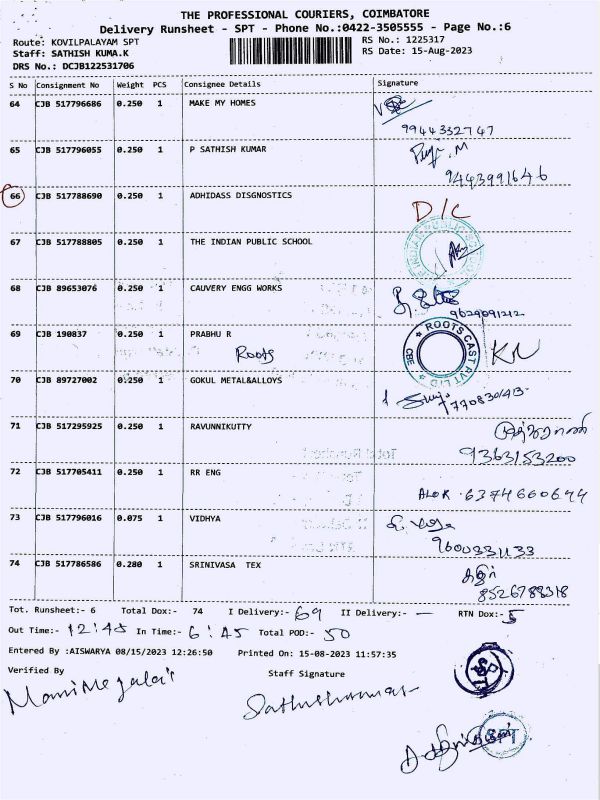 THE PROFESSIONAL COURIERS, COIMBATORE
Delivery Runsheet - SPT - Phone No.:0422-3505555 - Page No.:6
Route: KOVILPALAYAM SPT
Staff: SATHISH KUMA.K
DRS No.: DCJB122531706
RS No.: 1225317
RS Date: 15-Aug-2023
S No Consignment No Weight PCS Consignee Details Signature
64 CJB 517796686 0.250 1 MAKE MY HOMES
9944332747
65 CJB 517796055 0.250 1 P SATHISH KUMAR
9443991646
66 CJB 517788690 0.250 1 ADHIDASS DISGNOSTICS D/C
67 CJB 517788805 0.250 1 THE INDIAN PUBLIC SCHOOL
68 CJB 89653076 0.250 1 CAUVERY ENGG WORKS
9629091212
69 CJB 190837 0.250 1 PRABHU R
Roots
ROOTS CAST PVT LTD CBE
70 CJB 89727002 0.250 1 GOKUL METAL&ALLOYS
71 CJB 517295925 0.250 1 RAVUNNIKUTTY
9363153200
72 CJB 517705411 0.250 1 RR ENG
73 CJB 517796016 0.075 1 VIDHYA
9600331133
74 CJB 517786586 0.280 1 SRINIVASA TEX
8526788318
Tot. Runsheet:- 6 Total Dox:- 74 I Delivery:- 69 II Delivery:- — RTN Dox:- 5
Out Time:- 12:45 In Time:- 6:45 Total POD:- 50
Entered By :AISWARYA 08/15/2023 12:26:50 Printed On: 15-08-2023 11:57:35
Verified By Staff Signature